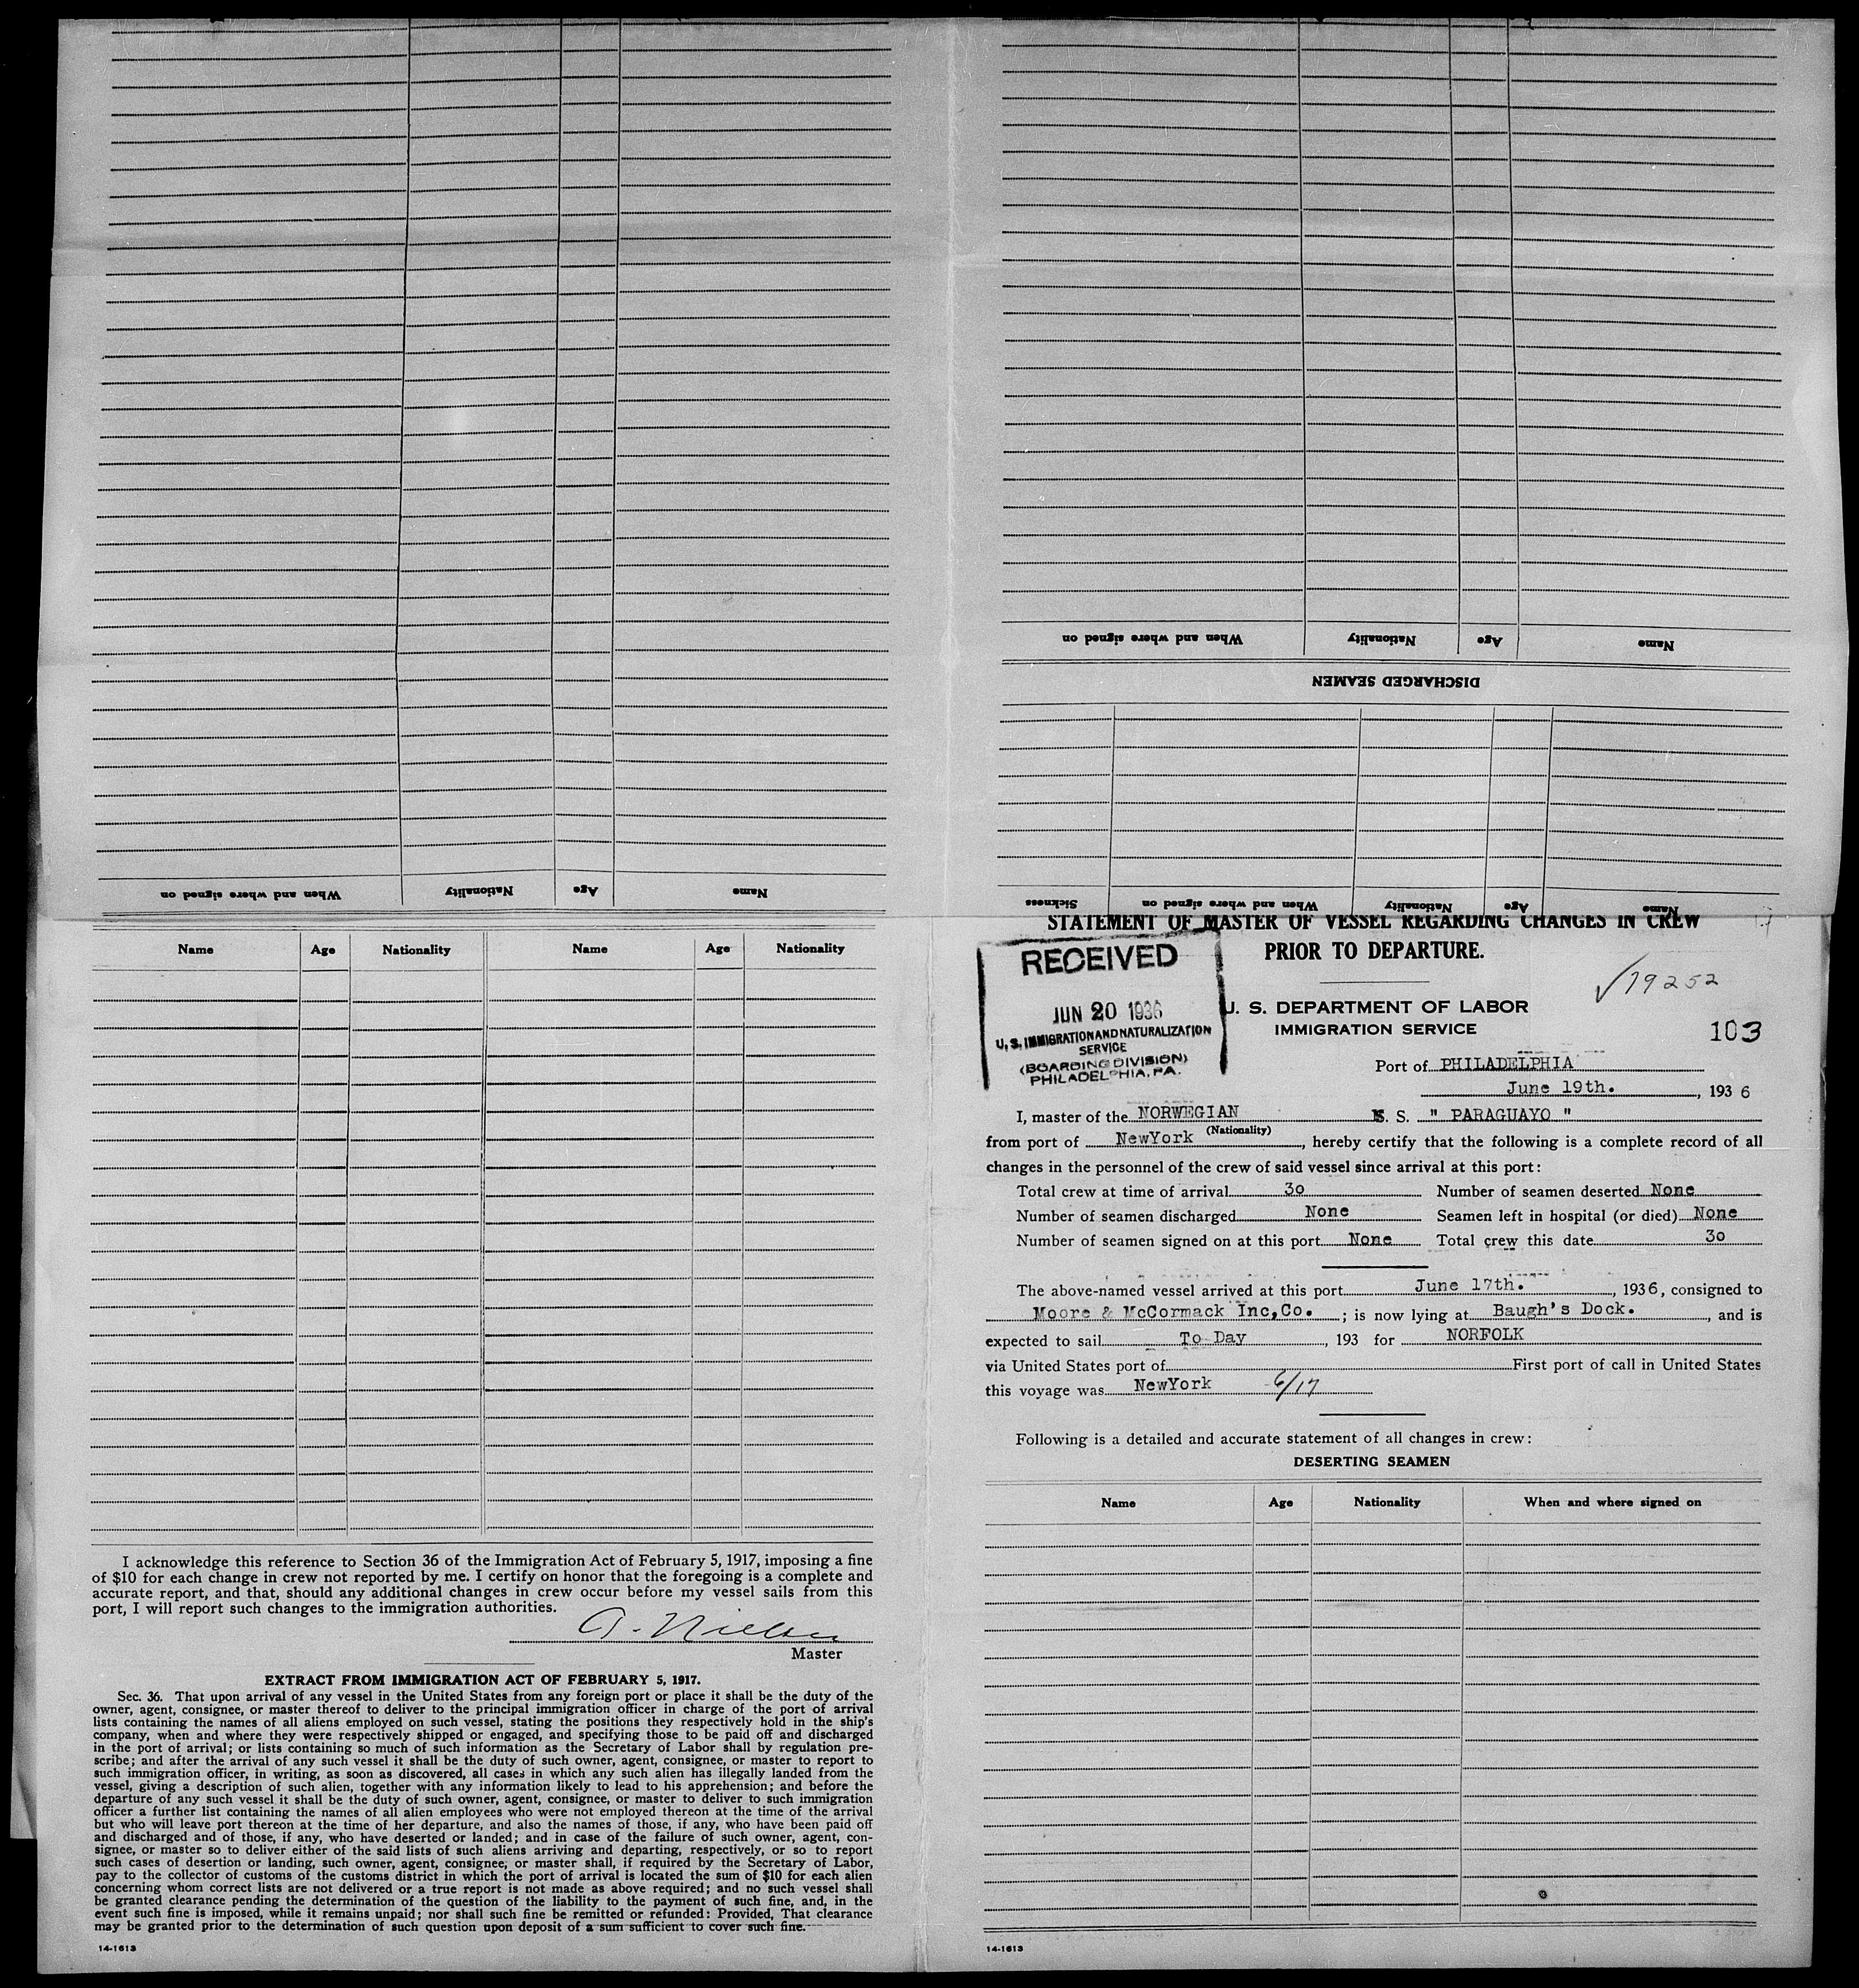 When and where signed on Nationality Age Name
When and where signed on Nationality Age Name
DISCHARGED SEAMEN
Sickness When and where signed on Nationality Age Name
Name Age Nationality Name Age Nationality
I acknowledge this reference to Section 36 of the Immigration Act of February 5, 1917, imposing a fine
of $10 for each change in crew not reported by me. I certify on honor that the foregoing is a complete and
accurate report, and that, should any additional changes in crew occur before my vessel sails from this
port, I will report such changes to the immigration authorities.
Master
EXTRACT FROM IMMIGRATION ACT OF FEBRUARY 5, 1917.
Sec. 36. That upon arrival of any vessel in the United States from any foreign port or place it shall be the duty of the
owner, agent, consignee, or master thereof to deliver to the principal immigration officer in charge of the port of arrival
lists containing the names of all aliens employed on such vessel, stating the positions they respectively hold in the ship's
company, when and where they were respectively shipped or engaged, and specifying those to be paid off and discharged
in the port of arrival; or lists containing so much of such information as the Secretary of Labor shall by regulation pre-
scribe; and after the arrival of any such vessel it shall be the duty of such owner, agent, consignee, or master to report to
such immigration officer, in writing, as soon as discovered, all cases in which any such alien has illegally landed from the
vessel, giving a description of such alien, together with any information likely to lead to his apprehension; and before the
departure of any such vessel it shall be the duty of such owner, agent, consignee, or master to deliver to such immigration
officer a further list containing the names of all alien employees who were not employed thereon at the time of the arrival
but who will leave port thereon at the time of her departure, and also the names of those, if any, who have been paid off
and discharged and of those, if any, who have deserted or landed; and in case of the failure of such owner, agent, con-
signee, or master so to deliver either of the said lists of such aliens arriving and departing, respectively, or so to report
such cases of desertion or landing, such owner, agent, consignee, or master shall, if required by the Secretary of Labor,
pay to the collector of customs of the customs district in which the port of arrival is located the sum of $10 for each alien
concerning whom correct lists are not delivered or a true report is not made as above required; and no such vessel shall
be granted clearance pending the determination of the question of the liability to the payment of such fine, and, in the
event such fine is imposed, while it remains unpaid; nor shall such fine be remitted or refunded: Provided, That clearance
may be granted prior to the determination of such question upon deposit of a sum sufficient to cover such fine.
14-1613
STATEMENT OF MASTER OF VESSEL REGARDING CHANGES IN CREW
PRIOR TO DEPARTURE.
RECEIVED
JUN 20 1936
U. S. IMMIGRATION AND NATURALIZATION
SERVICE
(BOARDING DIVISION)
PHILADELPHIA, PA.
√79252
U. S. DEPARTMENT OF LABOR
IMMIGRATION SERVICE
103
Port of PHILADELPHIA
June 19th., 1936
I, master of the NORWEGIAN S. S. " PARAGUAYO "
(Nationality)
from port of NewYork, hereby certify that the following is a complete record of all
changes in the personnel of the crew of said vessel since arrival at this port:
Total crew at time of arrival 30 Number of seamen deserted None
Number of seamen discharged None Seamen left in hospital (or died) None
Number of seamen signed on at this port None Total crew this date 30
The above-named vessel arrived at this port June 17th., 1936, consigned to
Moore & McCormack Inc,Co. ; is now lying at Baugh's Dock., and is
expected to sail To Day, 193 for NORFOLK
via United States port of First port of call in United States
this voyage was NewYork 6/17
Following is a detailed and accurate statement of all changes in crew:
DESERTING SEAMEN
Name Age Nationality When and where signed on
14-1613